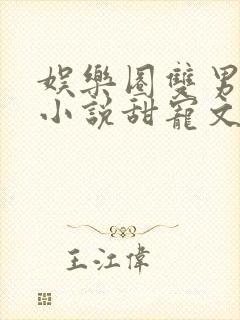 娛樂圈雙男
小說甜寵文
王江偉